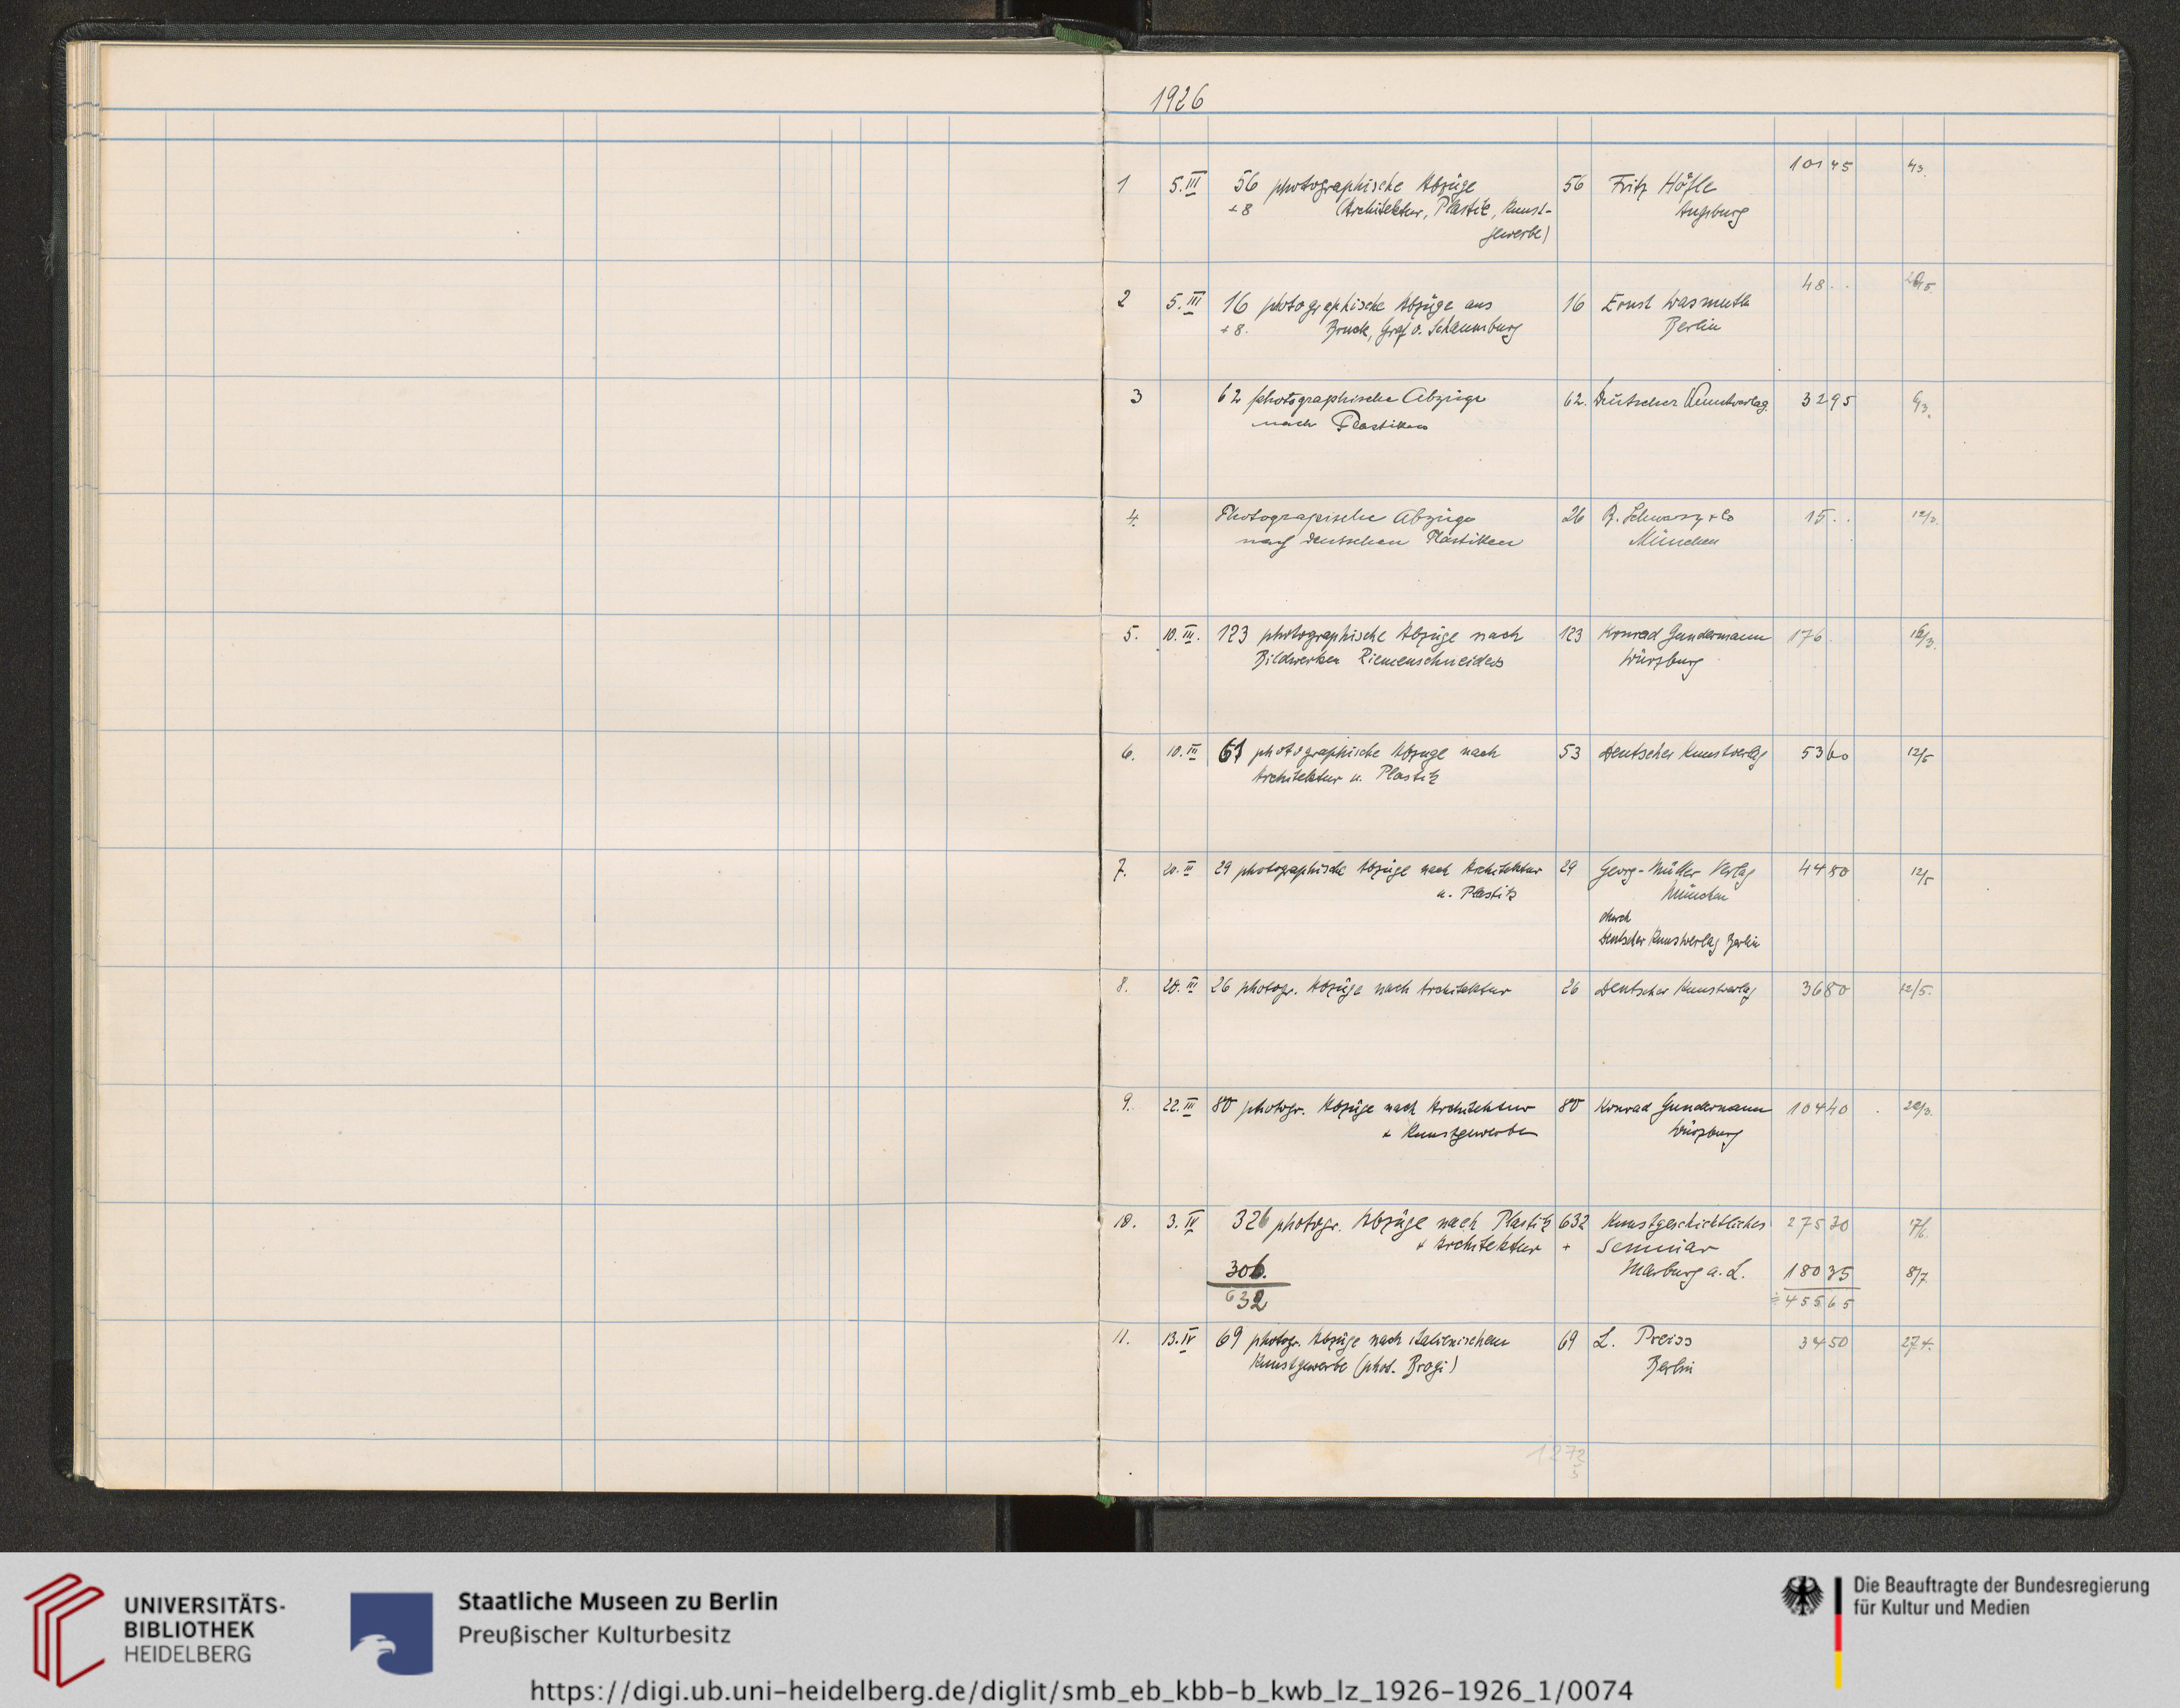 1926
1 5.III 56 photographische Abzüge 56 Fritz Höfle 101 45 4/3.
+8 (Architektur, Plastik, Kunst- Augsburg
gewerbe)
2 5.III 16 photographische Abzüge aus 16 Ernst Wasmuth 48 . .
+8. Bruck, Graf v. Schaumburg Berlin
3 62 photographische Abzüge 62. Deutscher Kunstverlag. 32 95 9/3.
nach Plastiken
4. Photograpische Abzüge 26 B. Schwarz & Co 15 . . 12/3.
nach deutschen Plastiken München
5. 10.III. 123 photographische Abzüge nach 123 Konrad Gundermann 176 .
Bildwerken Riemenschneiders Würzburg
6. 10.III photographische Abzüge nach 53 Deutscher Kunstverlag 53 60 12/5
Architektur u. Plastik
7. 20.III 29 photographische Abzüge nach Architektur 29 Georg-Müller Verlag 44 80 12/5
u. Plastik München
durch
Deutscher Kunstverlag Berlin
8. 20.III 26 photogr. Abzüge nach Architektur 26 Deutscher Kunstverlag 36 80 12/5.
9. 22.III 80 photogr. Abzüge nach Architektur 80 Konrad Gundermann 104 40 .
+ Kunstgewerbe Würzburg
10. 3.IV 326 photogr. Abzüge nach Plastik 632 Kunstgeschichtliches 275 30 17/6.
+ Architektur + Seminar
306. Marburg a. L. 180 35 8/7
632 = 455 65
11. 13.IV 69 photogr. Abzüge nach italienischem 69 L. Preiss 34 50 27/4.
Kunstgewerbe (phot. Brogi) Berlin
1272
UNIVERSITÄTS-
BIBLIOTHEK
HEIDELBERG
Staatliche Museen zu Berlin
Preußischer Kulturbesitz
Die Beauftragte der Bundesregierung
für Kultur und Medien
https://digi.ub.uni-heidelberg.de/diglit/smb_eb_kbb-b_kwb_lz_1926-1926_1/0074